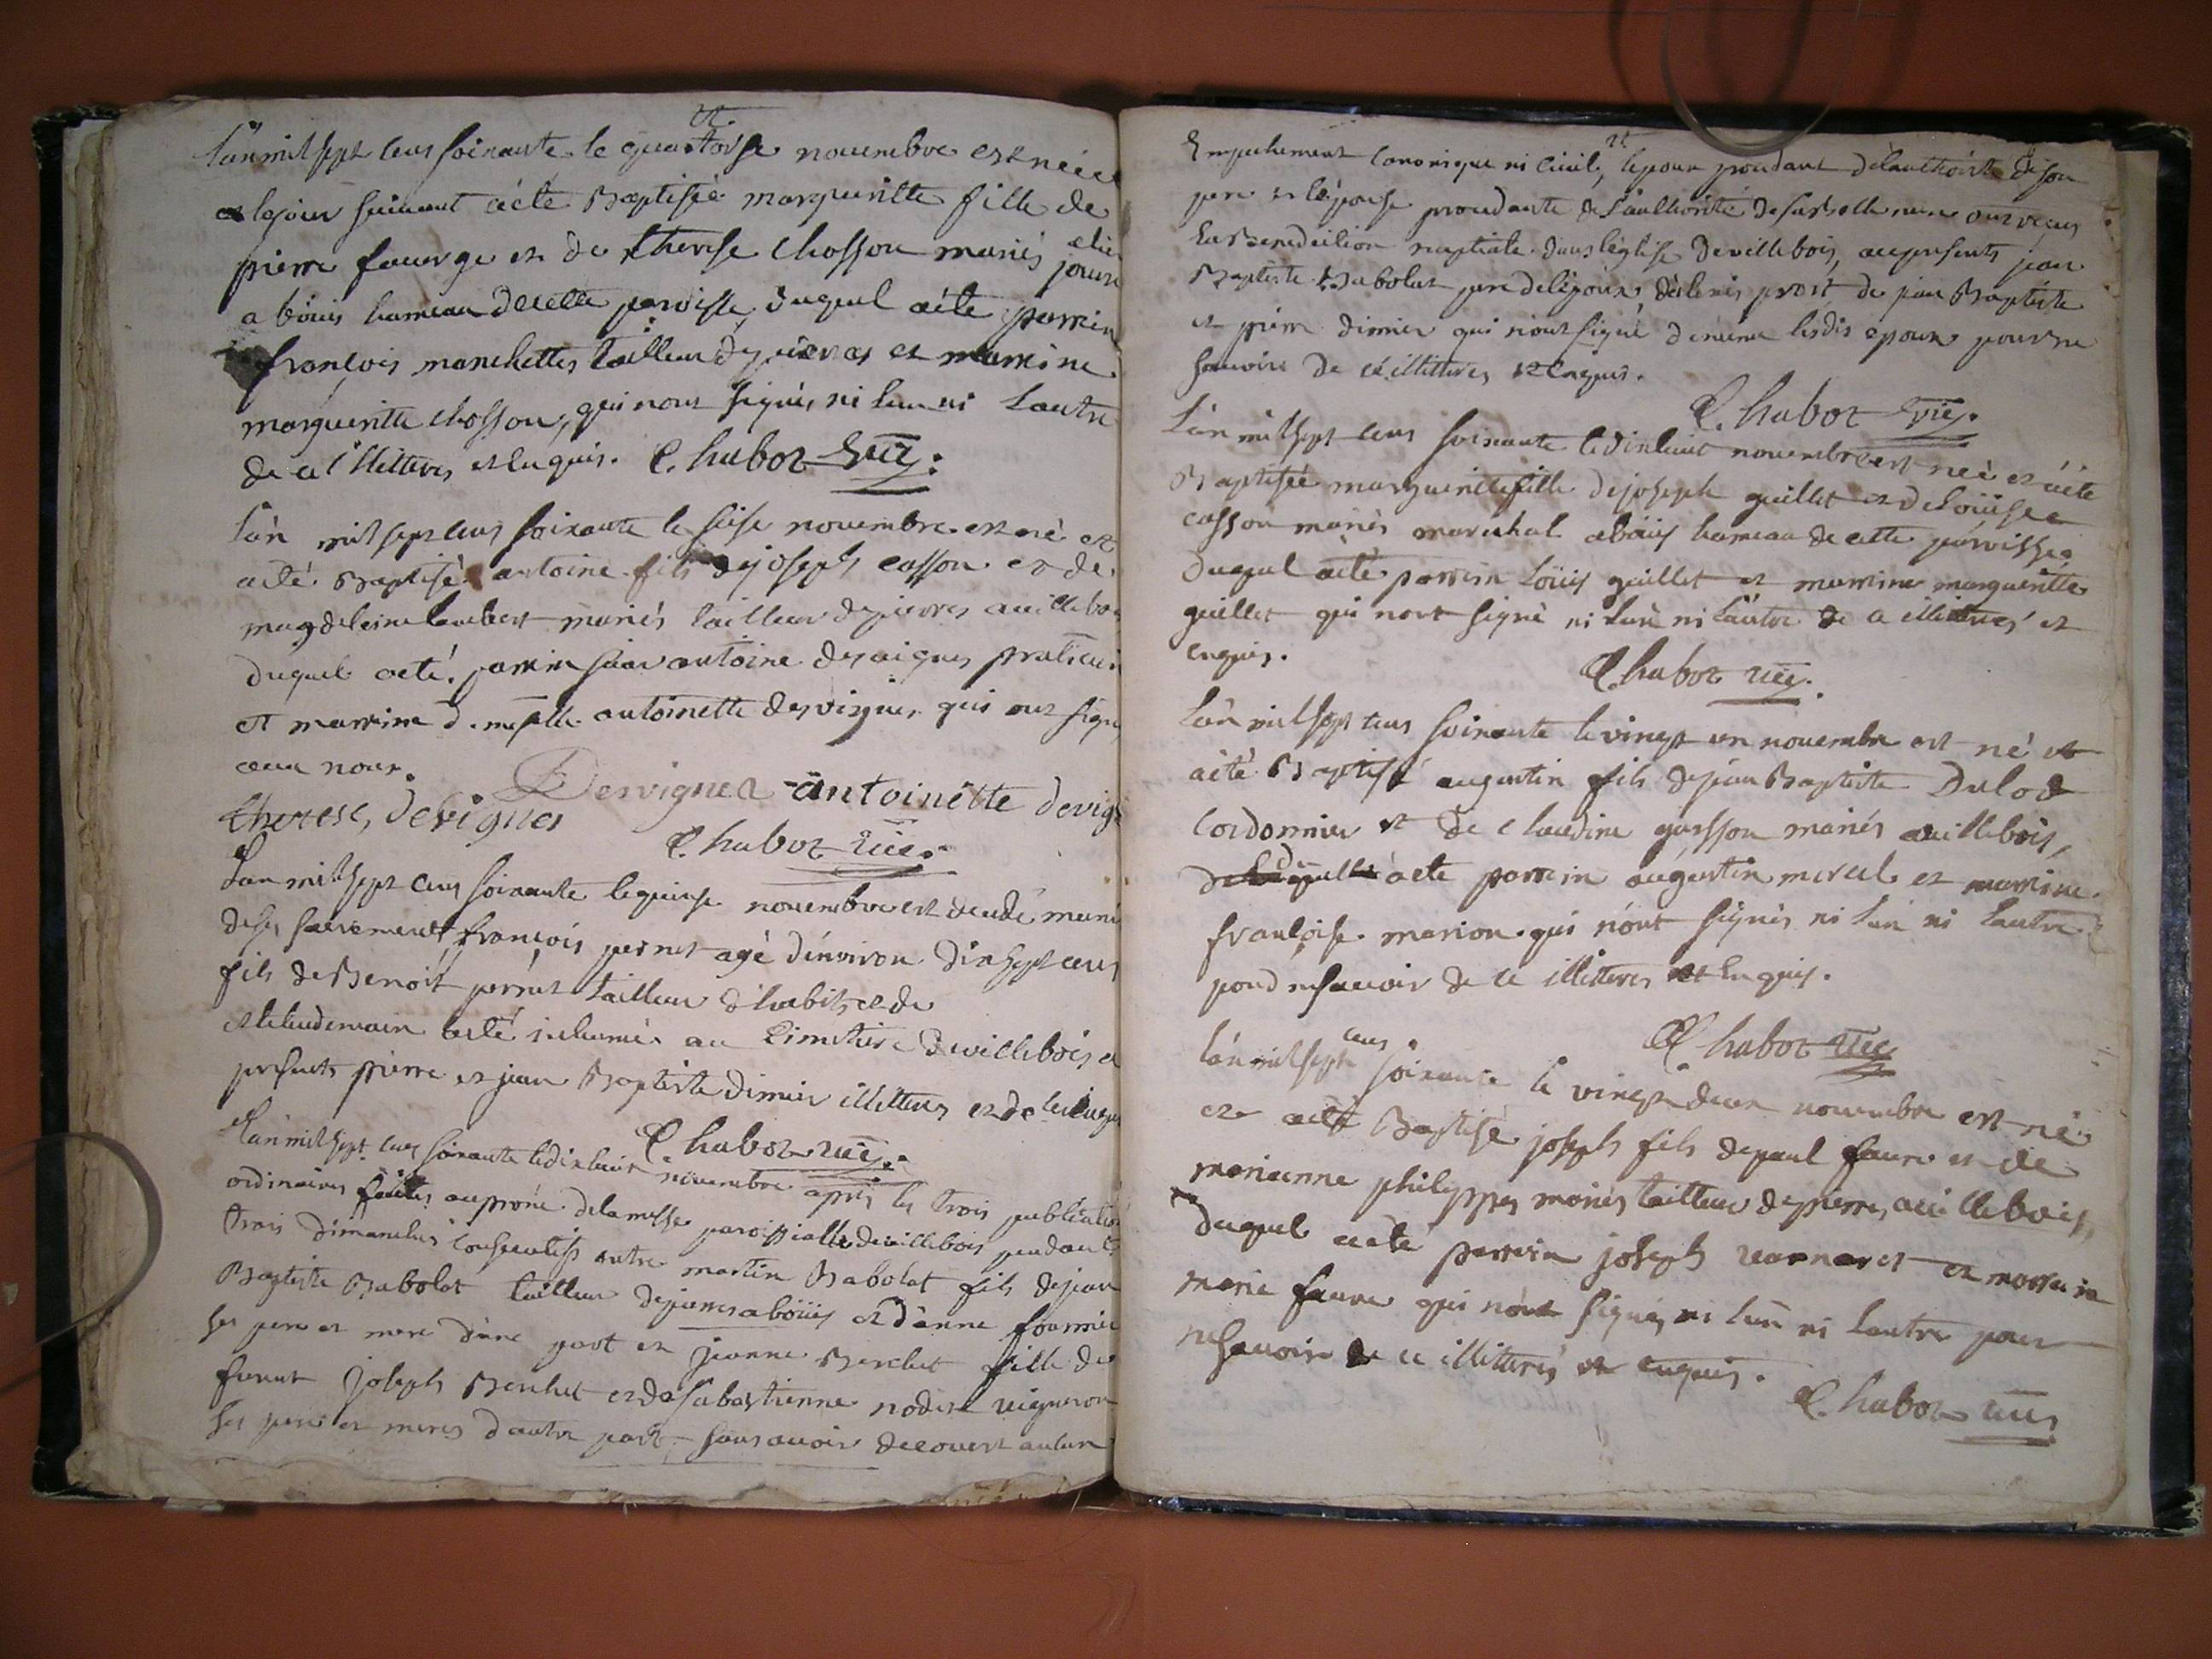 L'an mil sept cens soixante le quatorse novembre est néee
et le jour suivant aété Baptisée margueritte fille de
pierre faverge et de therese chosson mariés
jour
a bouis hameau decette paroisse, duquel aéte parrin
françois manchettes tailleur de pierres et marrine
margueritte chosson, qui nont signés ni lun ni lautre
de ce illitteres et enquis. C. habot vic.
L'an mil sept cens soixante le seise novembre est né et
aété Baptisé antoine fils de joseph casson et de
magdeleine lambert mariés tailleur de pierres avillebois
duquel aeté parrin sieur antoine desvignes praticien
et marrine demselle antoinette desvignes qui ont signé
avec nous.
Desvignes antoinette devig
therese, devignes
C. habot vic.
L'an mil sept cens soixante le quinse novembre est décedé muni
de ses sacrements françois pernet agé d'énviron dix sept ans
fils de Benoit pernet tailleur d'habits et de
et le lendemain aeté inhumé au cimetiere de villebois
presents pierre et jean Baptiste dimier illitteres et de ce enquis
C. habot vic.
L'an mil sept cens soixante le dix huit novembre apres les trois publications
ordinaires faittes au prone de la messe paroissialle de villebois pendant
trois dimanches consecutifs entre martin Babolat fils de jean
Baptiste Babolat tailleur de pierres a boüis et d'anne fournier
ses pere et mere d'une part et jeanne Berchet fille de
funut joseph Berchet et de sabastienne nodet vigneron
ses pere et meres d'autre part, sans avoir decouvert aucun
Empechement canonique ni civil, lepoux procedant de lauthorité de son
pere et l'épouse procedante de l'authorité de sa mere ont reçus
la Benediction nuptiale dans l'église de villebois, aux presents jean
Baptiste Babolat pere de l'époux, denis prost de jean Baptiste
et pierre dimier qui n'ont signé de même lesdis epoux pour ne
scavoire de ce illitteres et enquis.
C. habot vic.
L'an mil sept cens soixante le dix huit novembre est née et aéte
Baptisée margueritte fille de joseph guillet et de loüise
casson mariés marechal a boüis hameau de cette paroisse
duquel aeté parrin loüis guillet et marrine margueritte
guillet qui nont signé ni lun ni lautre de ce illitteres et
enquis.
C. habot vic.
L'an mil sept cens soixante le vingt un novembre est né et
aété Baptisé augustin fils de jean Baptiste Dulod
cordonnier et de claudine gasson mariés avillebois,
aete parrein augustin mercel et marrine
françoise marion qui n'ont signés ni lun ni lautre
pour ne scavoir de ce illitteres et enquis.
C. habot vic
cens
L'an mil sept soixante le vingt deux novembre est né
et aété Baptisé joseph fils de paul favre et de
marianne philippes mariés tailleur de pierres avillebois,
duquel aeté parrein joseph varnaret et marreine
marie favre qui n'ont signés ni lun ni lautre pour
ne scavoir de ce illitterés et enquis.
C. habot vic